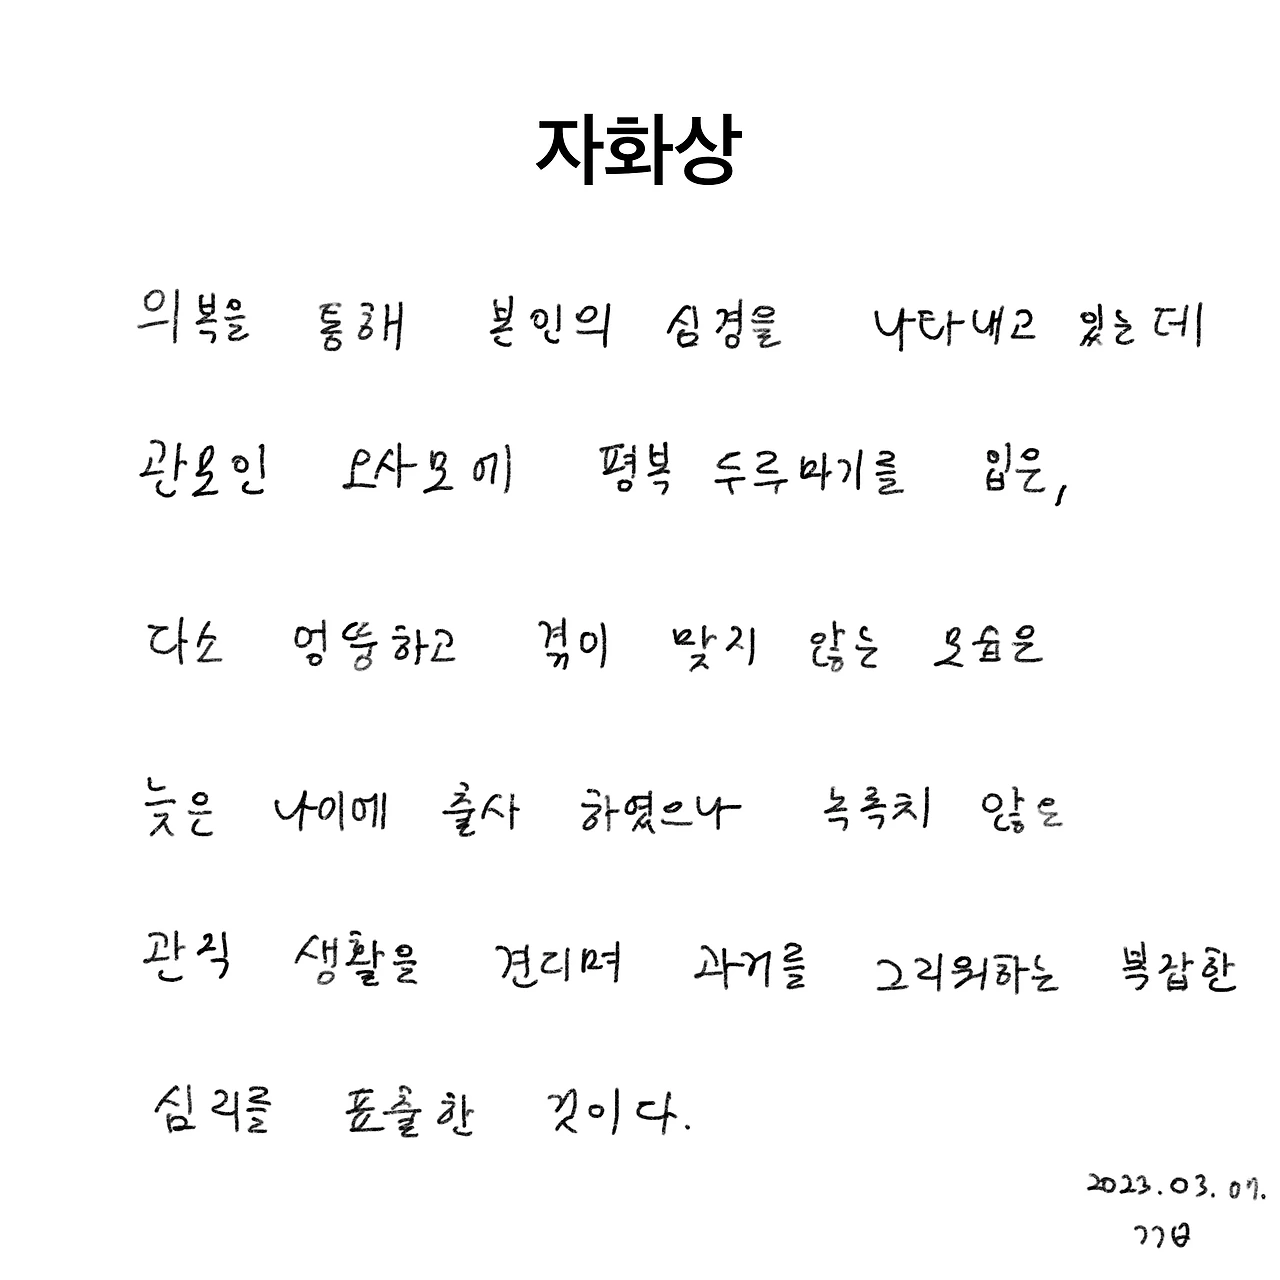 자화상
의복을 통해 본인의 심경을 나타내고 있는데
관모인 오사모에 평복 두루마기를 입은,
다소 엉뚱하고 겪이 맞지 않는 모습은
늦은 나이에 출사 하였으나 녹록치 않은
관직 생활을 견디며 과거를 그리워하는 복잡한
심리를 표출한 것이다.
2023.03.07.